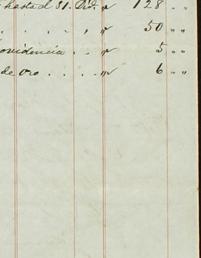 hasta el 31. Dic. " 128 " "
. . . . , " 50 " "
rovidencia . . " 5 " "
de oro . . . . " 6 " "